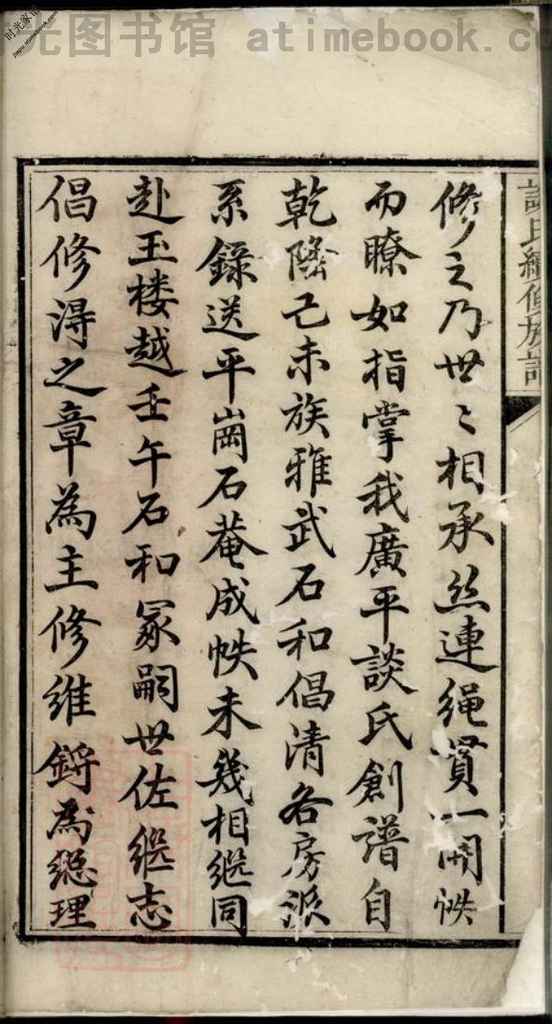 时光图书馆 atimebook.com
談氏續修族譜
修之乃世〻相承丝連绳貫一開帙
而瞭如指掌我廣平談氏創譜自
乾隆己未族雅武石和倡清各房派
系錄送平崗石菴成帙未幾相继同
赴玉楼越壬午石和冢嗣世佐继志
倡修淂之章為主修维鏘為總理